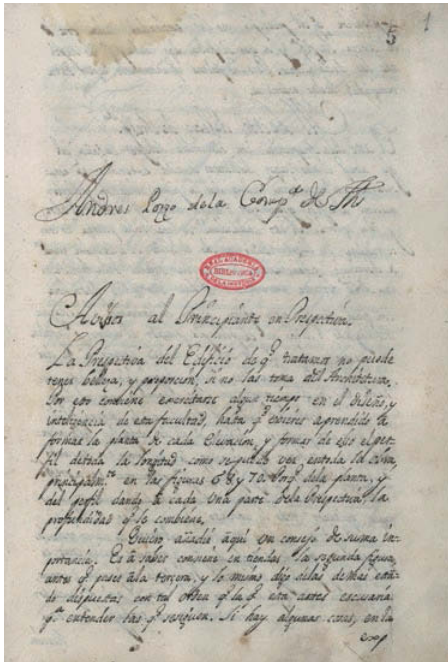 1
5
Andres Pozo de la Comp.ª de Jhs
REAL ACADEMIA
BIBLIOTECA
DE LA HISTORIA
Avisos al Principiante en Prespectiva.
La Prespectiva del Edificio de q.e tratamos no puede
tener belleza, y proporcion, si no las toma del Architectura.
Por esto combiene exercitarse algun tiempo en el diseño, y
inteligencia de esta facultad, hasta q.e esteis aprendido a
formar la planta de cada Elevación, y formar de esso el per-
fil de toda la longitud como se puede ver en toda la obra,
principalm.te en las figuras 68 y 70. Porq.e de la planta, y
del perfil dando à cada una parte de la Prespectiva, la
profundidad q.e le combiene.
Quiero añadir aqui un consejo de suma im-
portancia. Es à saber combiene entiendas la segunda figura
antes q.e pases à la tercera, y lo mismo digo de las demas están-
do dispuestas con tal orden q.e la q.e esta antes es necesaria
p.a entender las q.e se siguen. Si hay algunas cosas, en la
exp